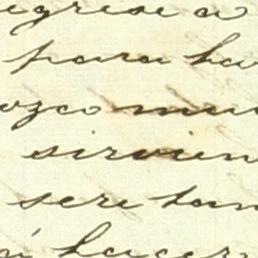 egrese a
para ha
ozco mu
sirvien
sere tan
á hacer